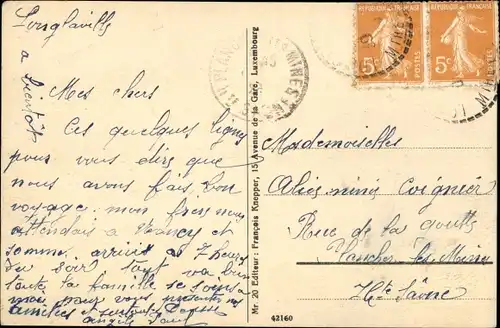 Longlaville
à bientôt
Mes chers
Ces quelques lignes
pour vous dire que
nous avons fais bon
voyage. mon frère nous
attendais à Nancy et
somme arrivés à 7 heures
du soir tout va bien
toute la famille se
moi pour vous
amitiés et
Mr. 20 Editeur: François Knepper, 15 Avenue de la Gare, Luxembourg
42160
REPUBLIQUE FRANÇAISE
5c
POSTES
REPUBLIQUE FRANÇAISE
5c
Mesdemoiselles
Coignier
Rue de la goutte
Plancher-les-Mines
Hte Saône